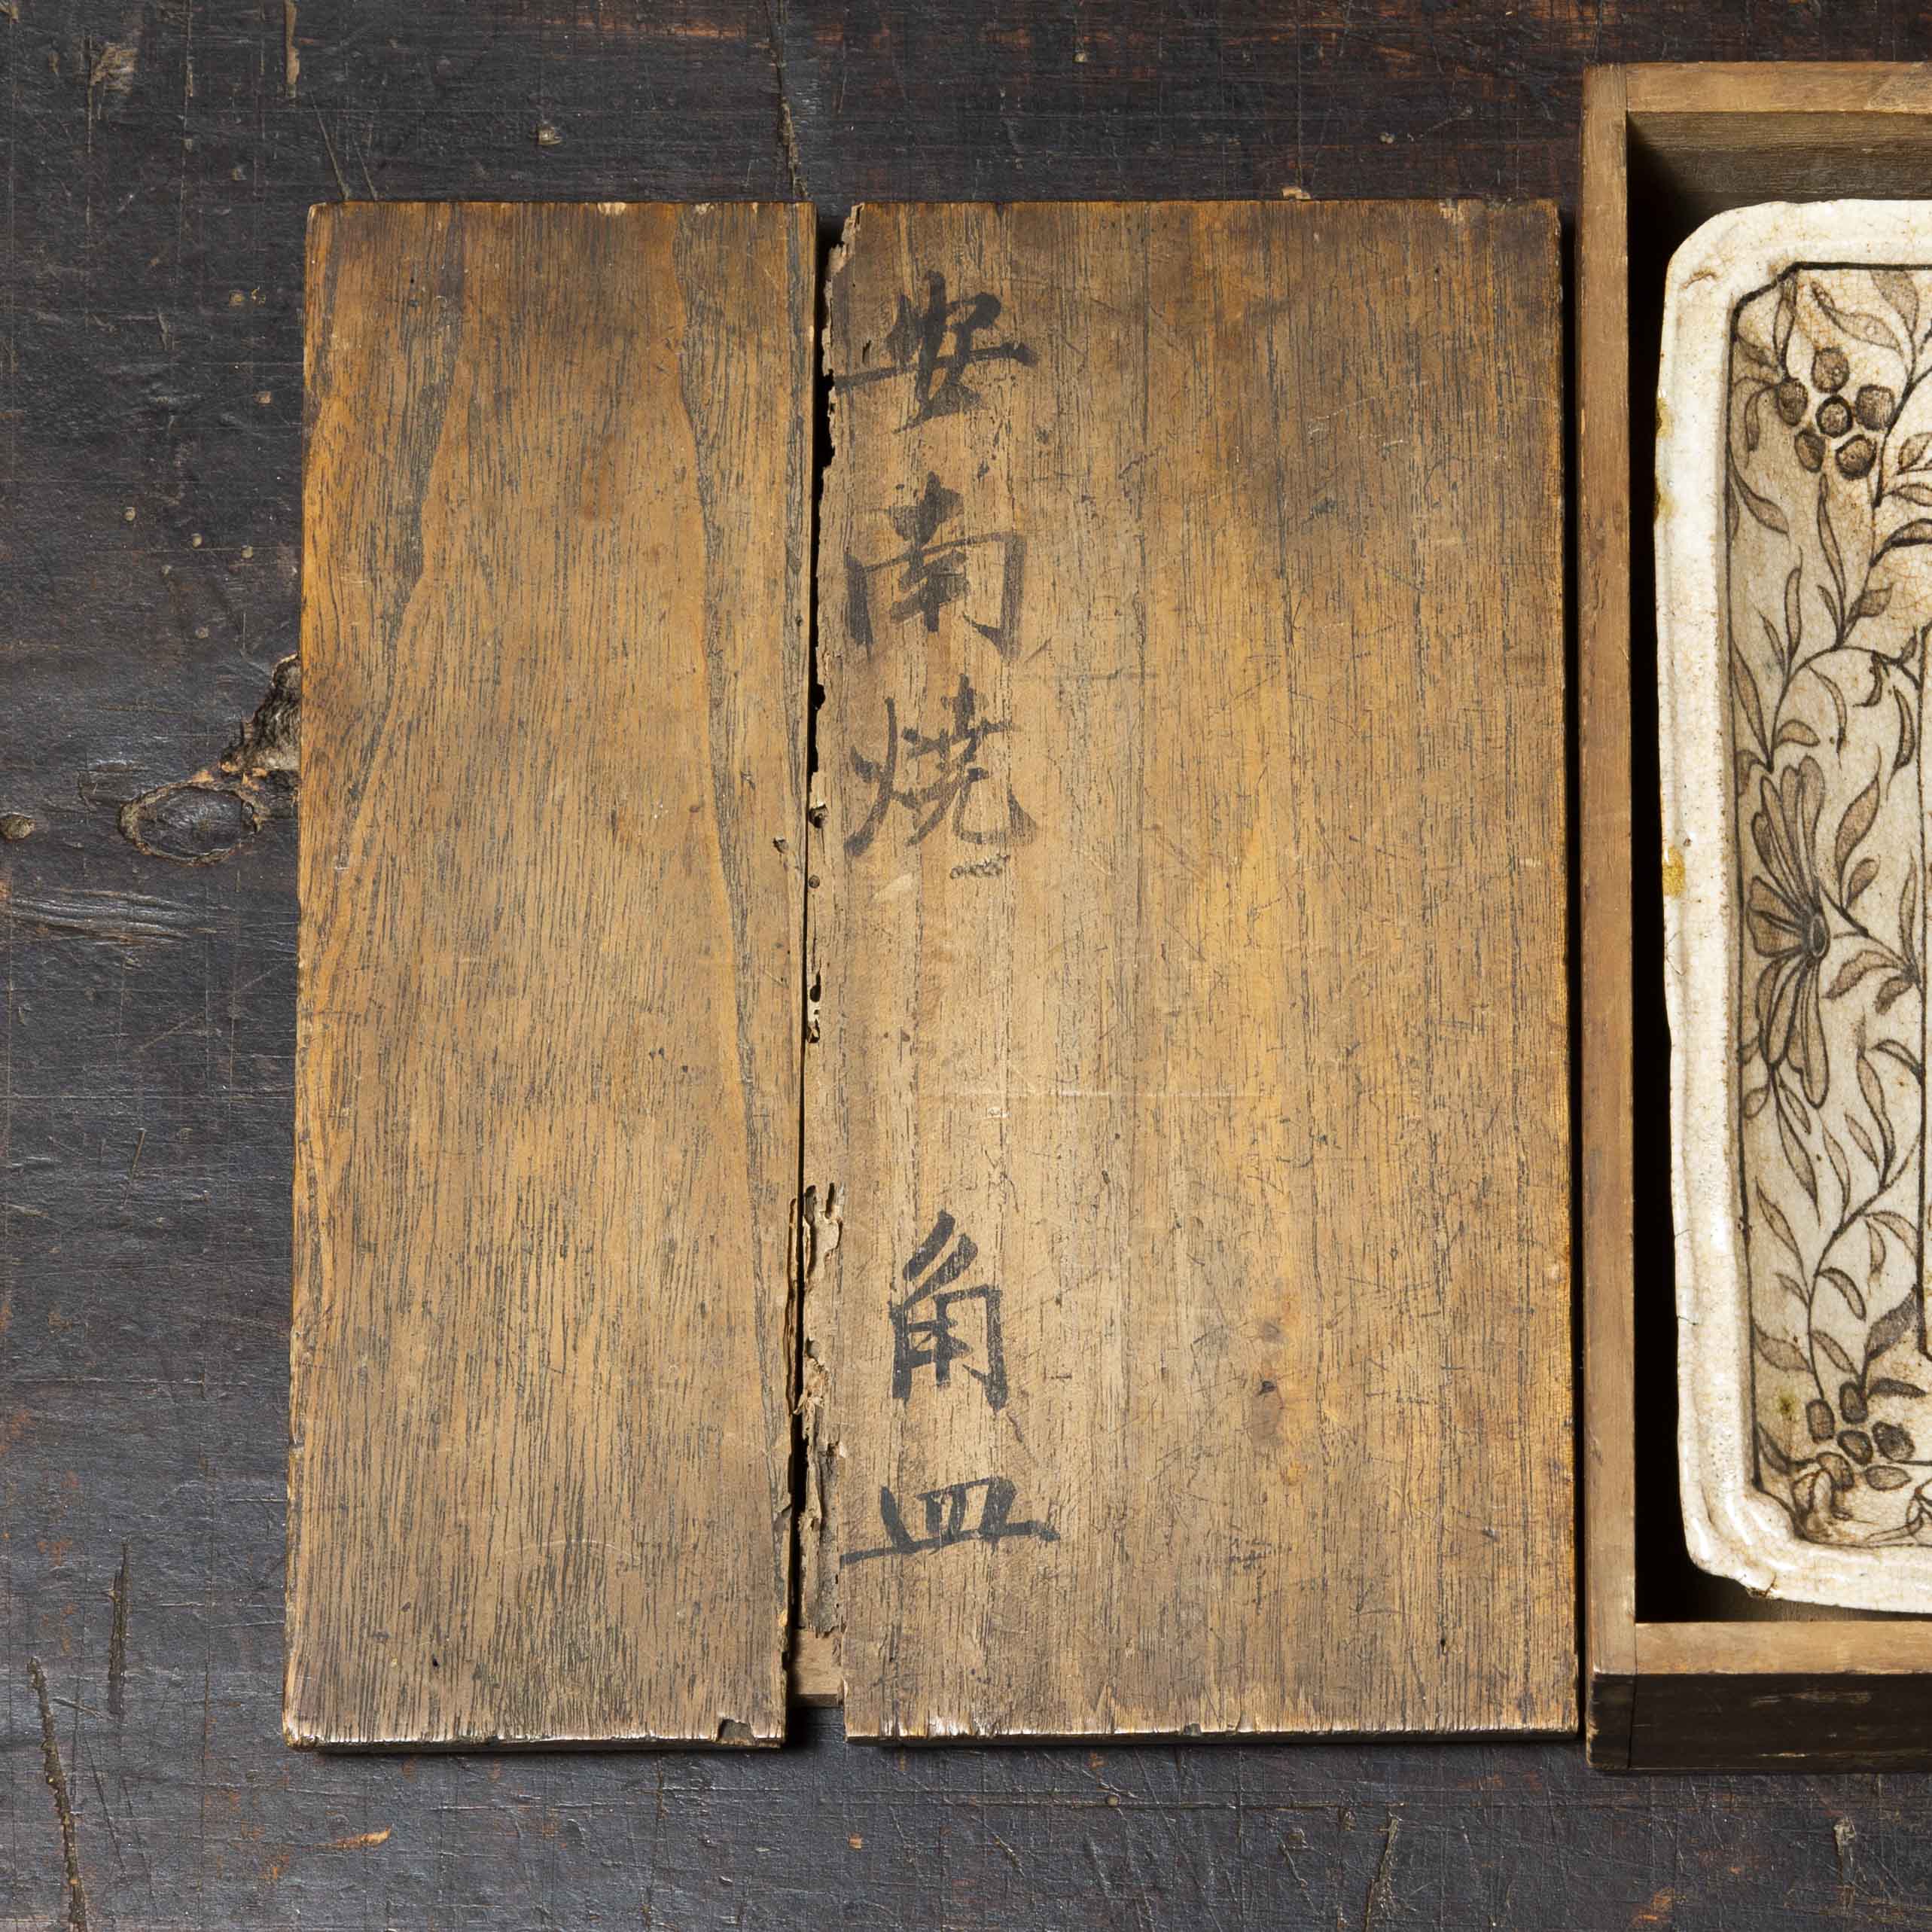 安南焼 角皿